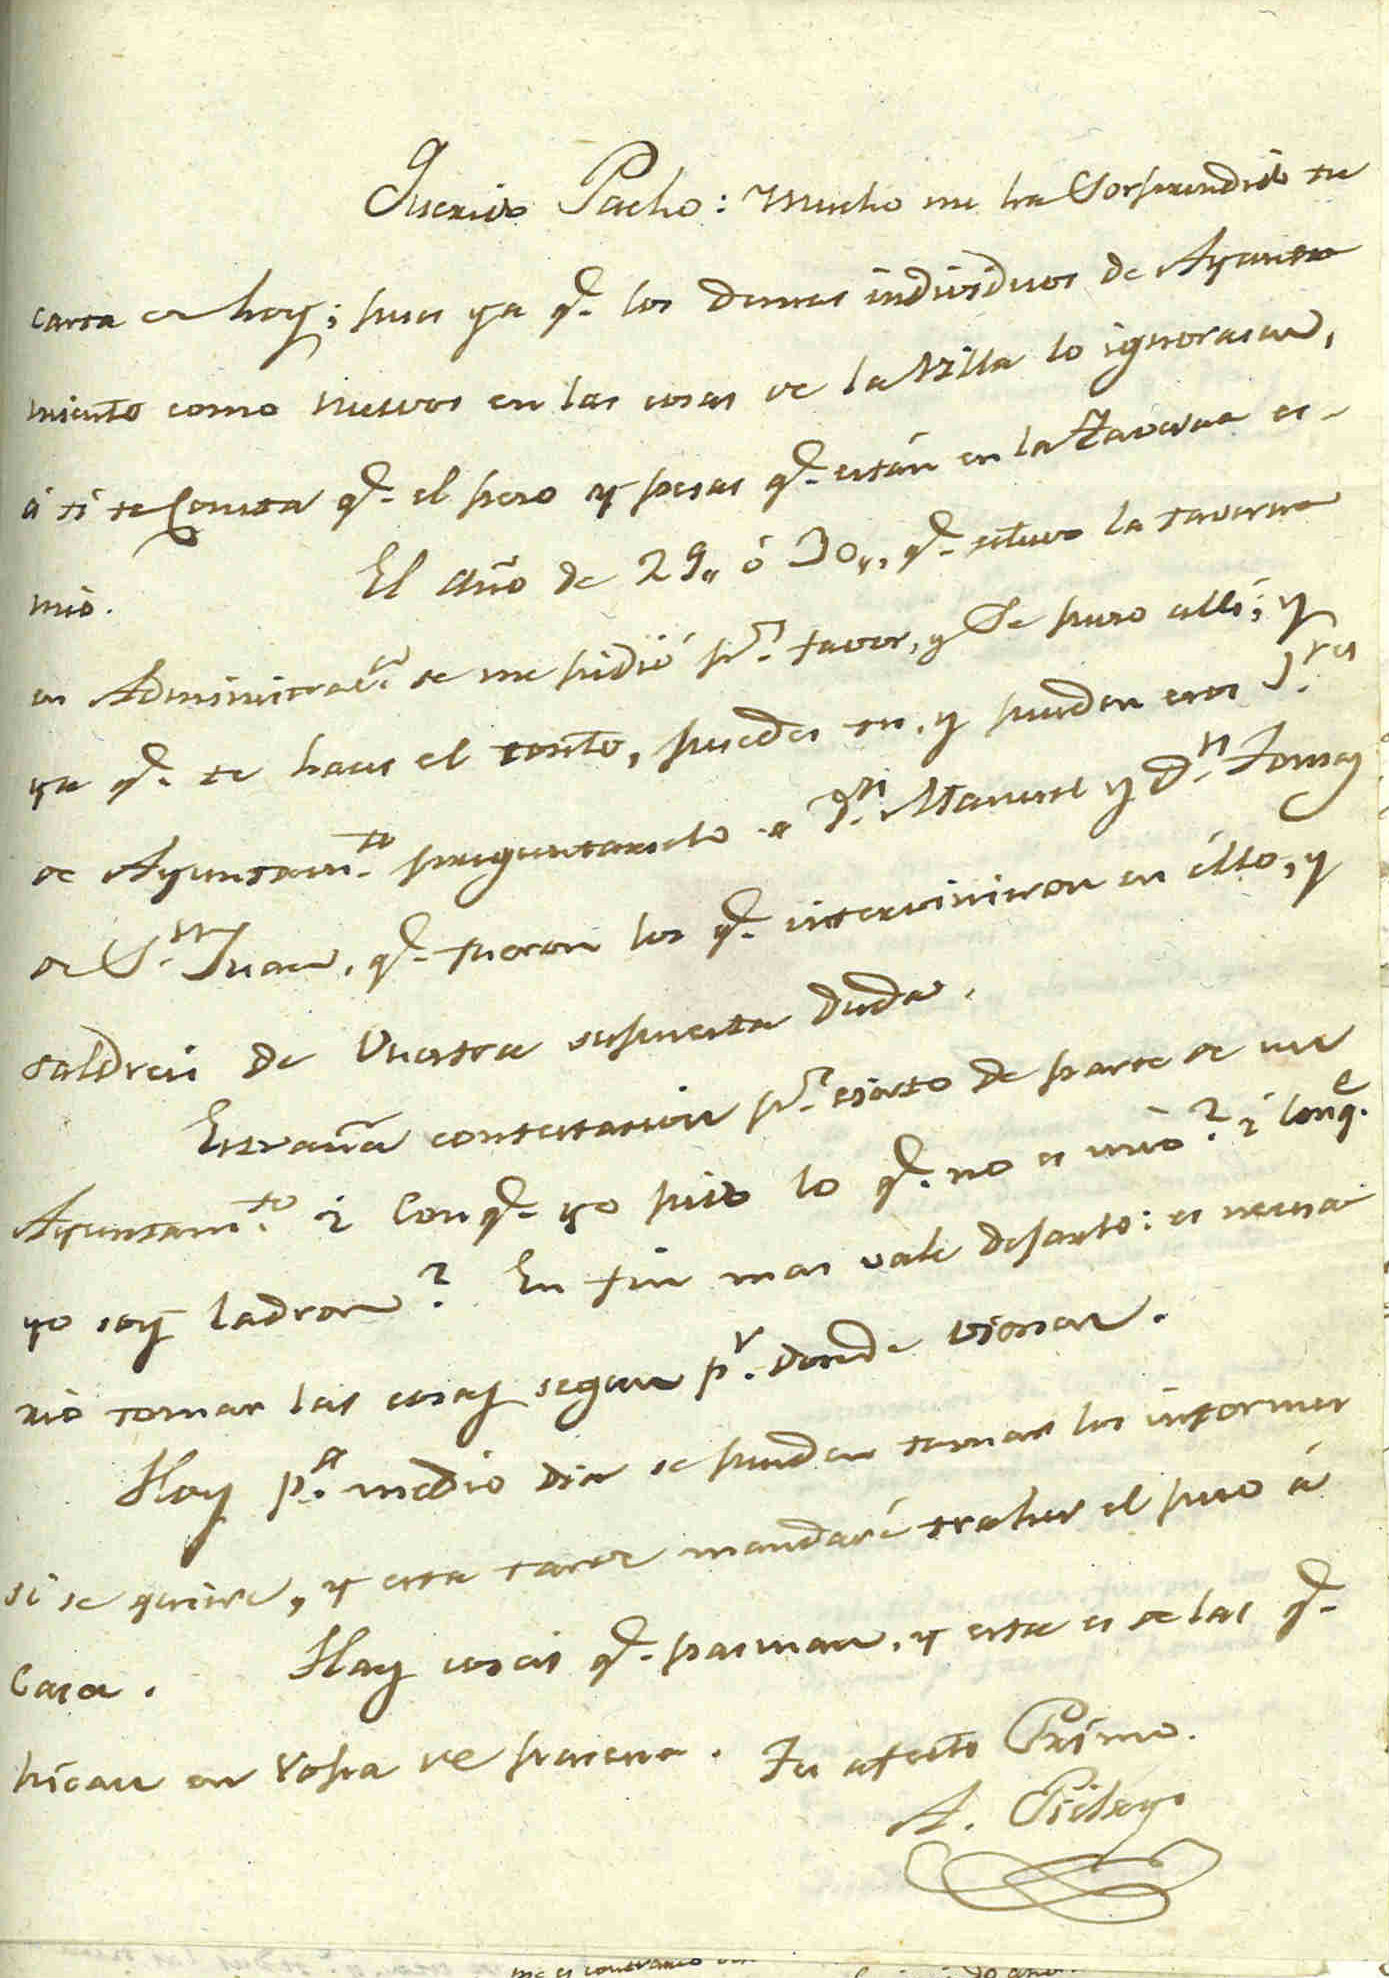 Querido Pacho: Mucho me ha Sorprendido tu
carta de hoy; pues ya q.e los demas individuos de Ayunta
miento como nuevos en las cosas de la Villa lo ignorasen,
á ti te Consta q.e el peso y pesas q.e están en la Taverna es
mio. El año de 29,, ó 30,,, q.e estuvo la taverna
en Administrac.n se me pidió p.r favor, y Se puso allí; y
ya q.e te haces el tonto, puedes tu, y pueden esos S.res
de Ayuntam.to preguntarselo a D.n Manuel y D.n Tomas
de S.n Juan, q.e fueron los q.e intervinieron en éllo, y
saldreis de Vuestra supuesta duda.
Estraña contestacion p.r cierto de parte de un
Ayuntam.to ¿Conq.e yo pido lo q.e no es mio? ¿Conq.e
yo soy ladron? En fin mas vale dejarlo: es necesa
rio tomar las cosas segun p.r donde vienen.
Hoy p.a medio dia se pueden tomar los informes
si se quiere, y esta tarde mandaré traher el peso á
Casa. Hay cosas q.e pasman, y esta es de las q.e
pican en ropa de pascua. Tu afecto Primo.
A.